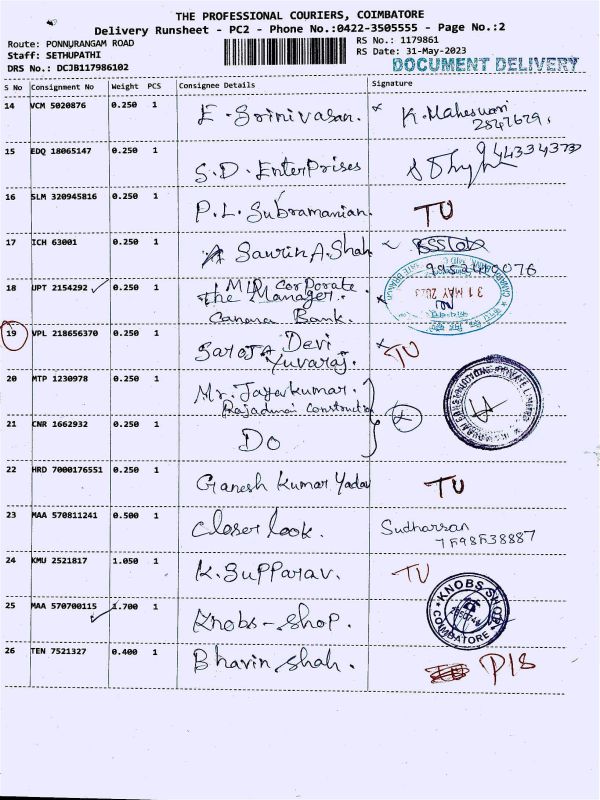 THE PROFESSIONAL COURIERS, COIMBATORE
Delivery Runsheet - PC2 - Phone No.:0422-3505555 - Page No.:2
Route: PONNURANGAM ROAD
Staff: SETHUPATHI
DRS No.: DCJB117986102
RS No.: 1179861
RS Date: 31-May-2023
DOCUMENT DELIVERY
S No Consignment No Weight PCS Consignee Details Signature
14 VCM 5020876 0.250 1 E. Srinivasan. K. Maheswari
15 EDQ 18065147 0.250 1 S.D. EnterPrises 944334373
16 SLM 320945816 0.250 1 P.L. Subramanian. TU
17 ICH 63001 0.250 1 Saurin A. Shah
18 UPT 2154292 0.250 1 MID Corporate
The Manager.
Canara Bank.
31 MAY 2023
19 VPL 218656370 0.250 1 Saroja Devi
Yuvaraj. TU
20 MTP 1230978 0.250 1 Mr. Jayakumar.
Rajadurai Constructio
21 CNR 1662932 0.250 1 Do
22 HRD 7000176551 0.250 1 Ganesh Kumar Yadav TU
23 MAA 570811241 0.500 1 Closer look. Sudharsan
7598538887
24 KMU 2521817 1.050 1 K. Supparav. TU
25 MAA 570700115 1.700 1 Knobs-shop.
KNOBS SHOP
COIMBATORE
26 TEN 7521327 0.400 1 Bhavin shah. P/S